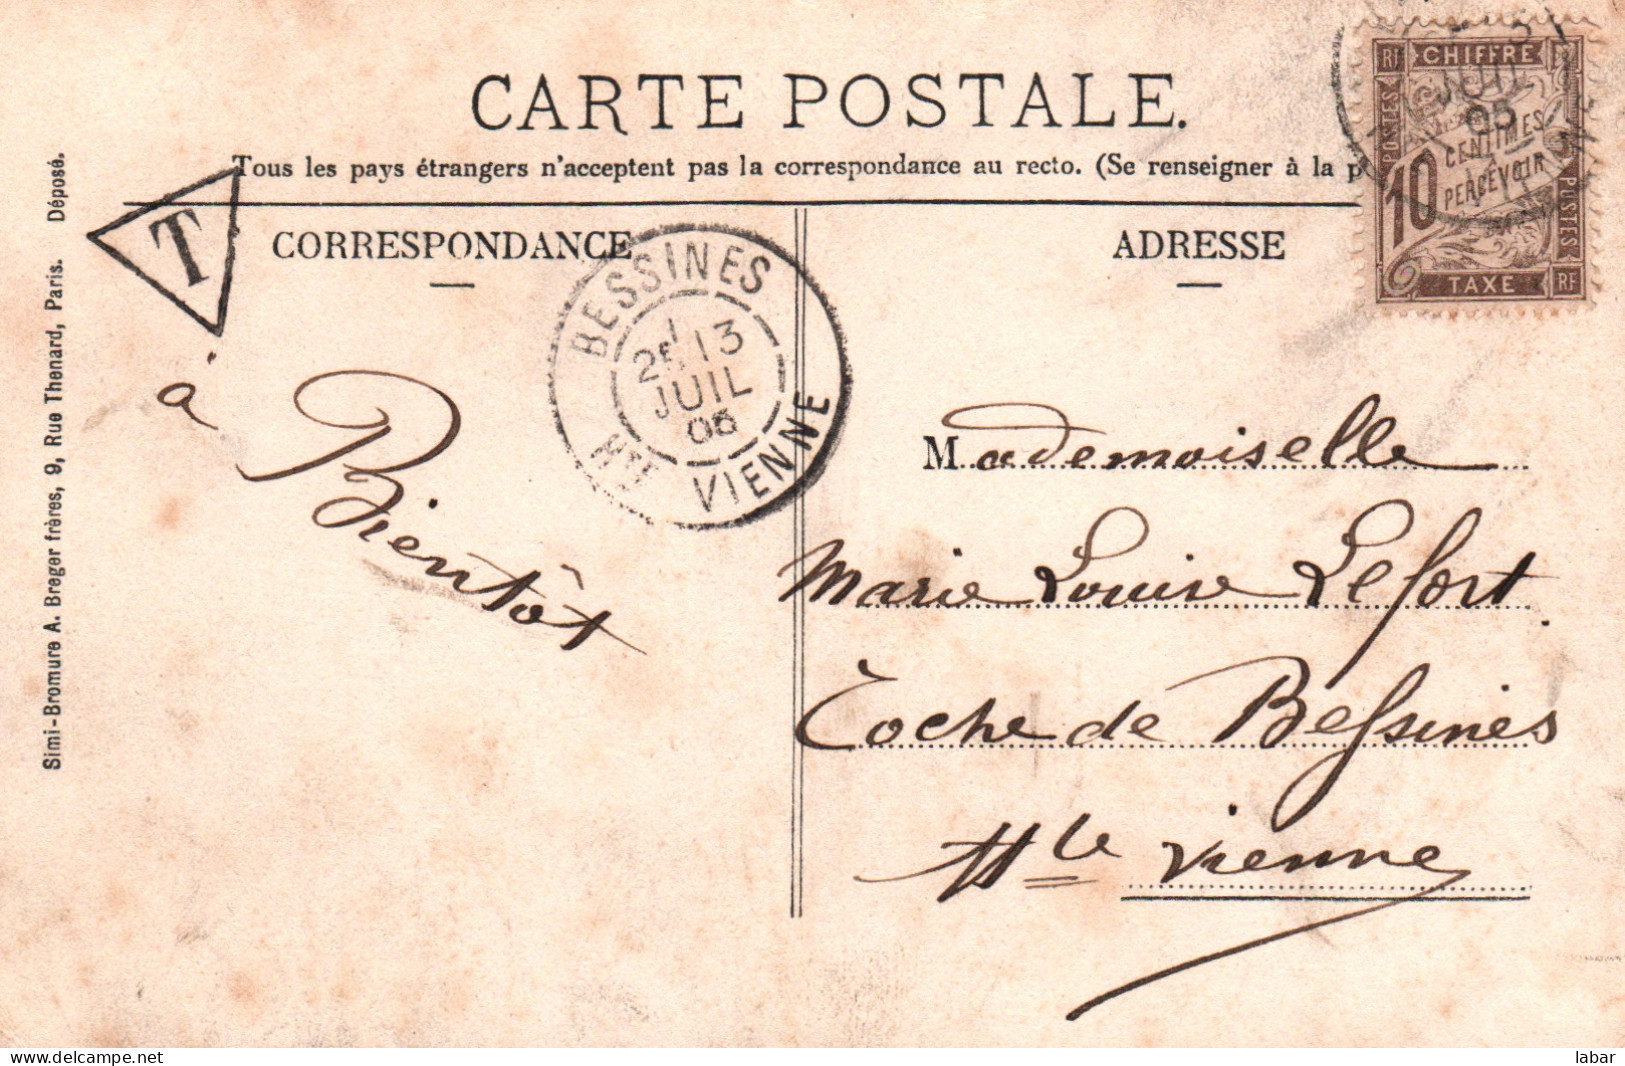 CARTE POSTALE.
Tous les pays étrangers n'acceptent pas la correspondance au recto. (Se renseigner à la p
T
CORRESPONDANCE
ADRESSE
Simi-Bromure A. Breger frères, 9, Rue Thenard, Paris. Déposé.
BESSINES
13
JUIL
HTE VIENNE
RF CHIFFRE
POSTES
10 CENTIMES
PERCEVOIR
POSTES
TAXE RF
JUIL
05
à
Bientôt
Mademoiselle
Marie Louise Lefort
de Bessines
Hte Vienne
delcampe.net
labar